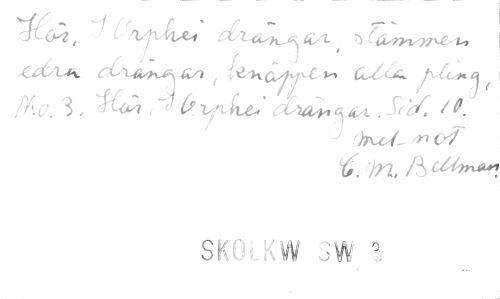 Hör, I Orphei drängar, stämmen
edra drängar, knäppen alla pling,
No. 3. Hör, I Orphei drängar. Sid. 10.
mel-not
C. M. Bellman.
SKOLKW SW 3